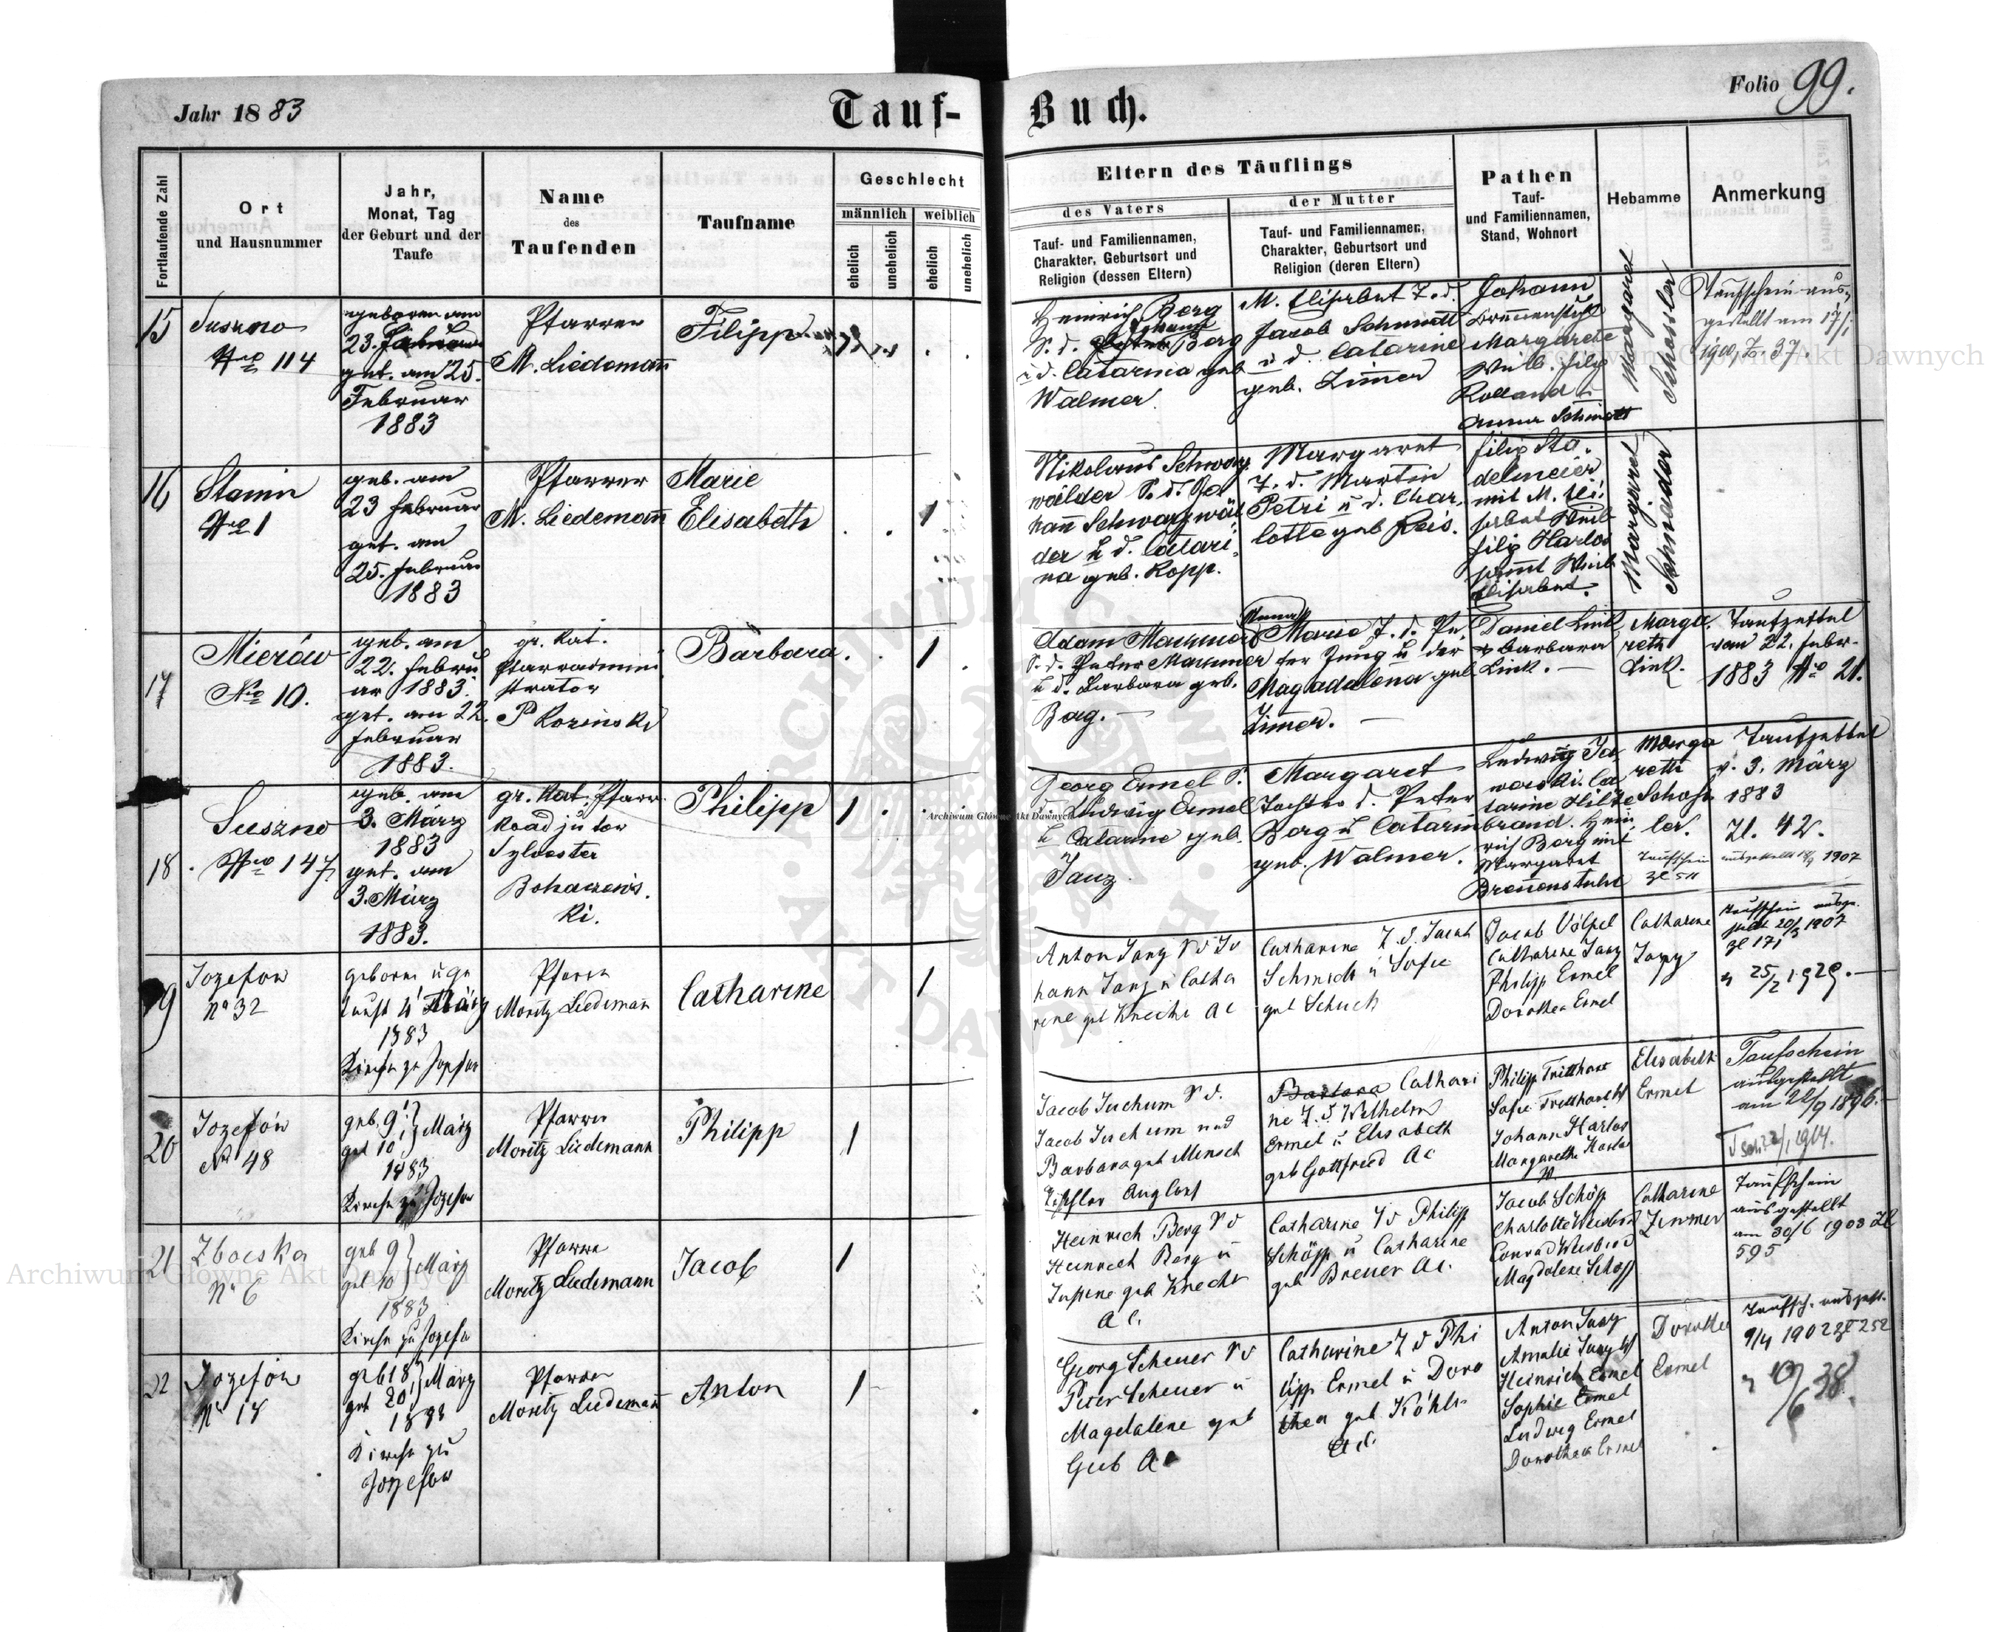 Jahr 1883
Tauf-
Buch.
Folio 99.
Fortlaufende Zahl
Ort
und Hausnummer
Jahr,
Monat, Tag
der Geburt und der
Taufe
Name
des
Taufenden
Taufname
Geschlecht
männlich
weiblich
ehelich
unehelich
ehelich
unehelich
Eltern des Täuflings
des Vaters
Tauf- und Familiennamen,
Charakter, Geburtsort und
Religion (dessen Eltern)
der Mutter
Tauf- und Familiennamen,
Charakter, Geburtsort und
Religion (deren Eltern)
Pathen
Tauf-
und Familiennamen,
Stand, Wohnort
Hebamme
Anmerkung
15
Suszno
Nro 114
geboren am
23. Februar
get. am 25.
Februar
1883
Pfarrer
M. Liedemann
Filipp
Heinrich Berg
S. d. Johann Berg
u d. Catarina geb
Walmer.
M. Elisabet T. d.
Jacob Schmidt
u d. Catarine
geb. Zimmer
Johann
Brennenstuhl
Margarete
Weib. filip
Rolland u
Anna Schmidt
Margaret
Schossler
Taufschein aus-
gestellt am 17/1
1900, Z. 37.
16
Stanin
Nro 1
geb. am
23 februar
get. am
25. februar
1883
Pfarrer
M. Liedemann
Marie
Elisabeth
1
Nikolaus Schwarz
wälder S. d. Jo
hann Schwarzwäl
der u d. Catari
na geb. Kopp.
Margaret
T. d. Martin
Petri u d. Char
lotte geb Reis.
filip Sta-
delmeier
mit M. Eli-
sabet Weib
filip Harlos
sammt Weib
Elisabet.
Margaret
Schneider
17
Mierów
Nro 10.
geb. am
22. febru
ar 1883.
get. am 22.
februar
1883.
gr. kat.
Pfarradmini
strator
P Rozinski
Barbara
1
Adam Mammer
S. d. Peter Mammer
u d. Barbara geb.
Berg.
Marie T. d. Pe-
ter Jung u der
Magdalena geb
Zimmer.
Daniel Link
Barbara
Link.
Marga
reth
Link.
Taufzettel
vom 22. febr-
1883 Nro 21.
18
Suszno
Nro 147
geb. am
3. März
1883
get. am
3. März
1883.
gr. kat. Pfarr
koadjutor
Sylvester
Bohaczews.
ki.
Philipp
1
Georg Ermel S.
d. Ludwig Ermel
u Catarine geb.
Janz
Margaret
Tochter d. Peter
Berg u Catarin
geb. Walmer.
Ludwig Ja
worski. Ca
tarine Hilde
brand. Hein
rich Berg mit
Margaret
Brennenstuhl
Marga
reth
Schoss
ler.
Taufschein
Taufzettel
v. 3. März
1883
Zl. 42.
1907
19
Jozefow
No 32
geboren u ge
tauft 4 März
1883
Kirche zu Jozefow
Pfarrer
Moritz Liedemann
Catharine
1
Anton Janz S d Jo
hann Janz u Catha
rine geb Knecht AC
Catharine T. d. Jacob
Schmidt u Sofie
geb Schuch
Jacob Völpel
Catharine Janz
Philipp Ermel
Dorothea Ermel
Catharine
Janz
Taufschein ausge-
stellt 20/3 1907
Zl 171
" 25/2 1929.
20
Jozefów
No 48
geb. 9
get 10 März
1883
Kirche zu Jozefow
Pfarrer
Moritz Liedemann
Philipp
1
Jacob Juchum S d.
Jacob Juchum und
Barbara geb Mensch
Barbara Cathari
ne T. d Wilhelm
Ermel u Elisabeth
geb Gottfried AC
Philipp Tritthart
Sofie Tritthart
Johann Harlos
Margarethe Harlos
Elisabeth
Ermel
Taufschein
ausgestellt
am 22/9 1896.
21
Zboiska
No 6
geb 9
get 10 März
1883
Kirche zu Jozefow
Pfarrer
Moritz Liedemann
Jacob
1
Heinrich Berg S d
Heinrich Berg u
geb Knecht
AC.
Catharine T d Philipp
Schöpp u Catharine
geb Breuer AC.
Jacob Schöpp
Charlotte Weisbrod
Conrad Weisbrod
Magdalene Schöpp
Catharine
Zimmer
Taufschein
ausgestellt
am 30/6 1903 Zl
595
22
Jozefów
No 18
geb 18
get 20 März
1883
Kirche zu
Jozefow
Pfarrer
Moritz Liedemann
Anton
1
Georg Scheuer S d
Peter Scheuer u
Magdalene geb
Geib AC
Catharine T d Phi
lipp Ermel u Doro
thea geb Köhler
AC.
Anton Janz
Amalie Janz
Heinrich Ermel
Sophie Ermel
Ludwig Ermel
Dorothea Ermel
Dorothea
Ermel
Taufsch. ausgest.
9/4 1902 Zl 252
Archiwum Główne Akt Dawnych
Archiwum Główne Akt Dawnych
Archiwum Główne Akt Dawnych